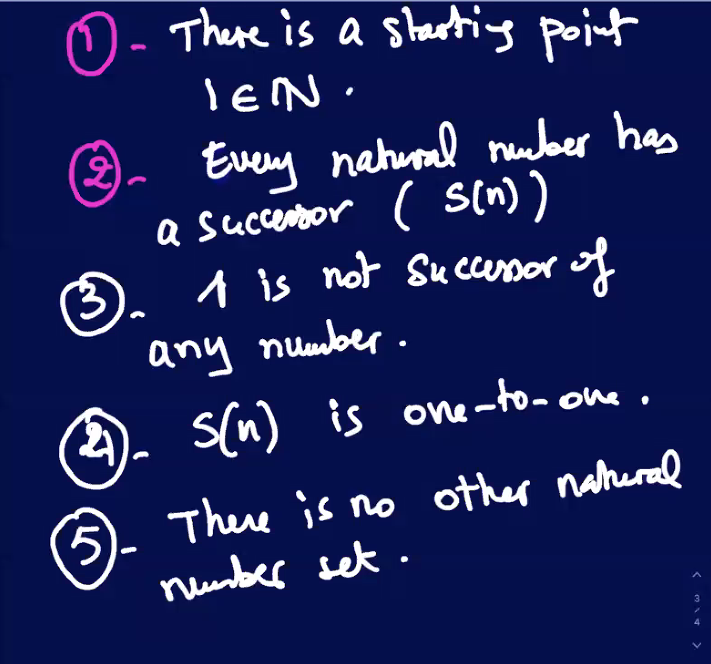 ①- There is a starting point
1 ∈ ℕ .
②- Every natural number has
a successor ( S(n) )
③- 1 is not successor of
any number .
④- S(n) is one-to-one .
⑤- There is no other natural
number set .
3
/
4